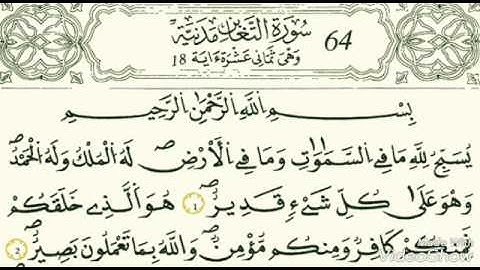 سُورَةُ التَّغَابُنِ مَدَنِيَّة 64
وَهِيَ ثَمَانِي عَشَرَةَ ءَايَة 18
بِسْمِ اللَّهِ الرَّحْمَٰنِ الرَّحِيمِ
يُسَبِّحُ لِلَّهِ مَا فِي السَّمَٰوَٰتِ وَمَا فِي الْأَرْضِ لَهُ الْمُلْكُ وَلَهُ الْحَمْدُ
وَهُوَ عَلَىٰ كُلِّ شَيْءٍ قَدِيرٌ ١ هُوَ الَّذِي خَلَقَكُمْ
فَمِنكُمْ كَافِرٌ وَمِنكُم مُّؤْمِنٌ وَاللَّهُ بِمَا تَعْمَلُونَ بَصِيرٌ ٢
Made With
VideoShow